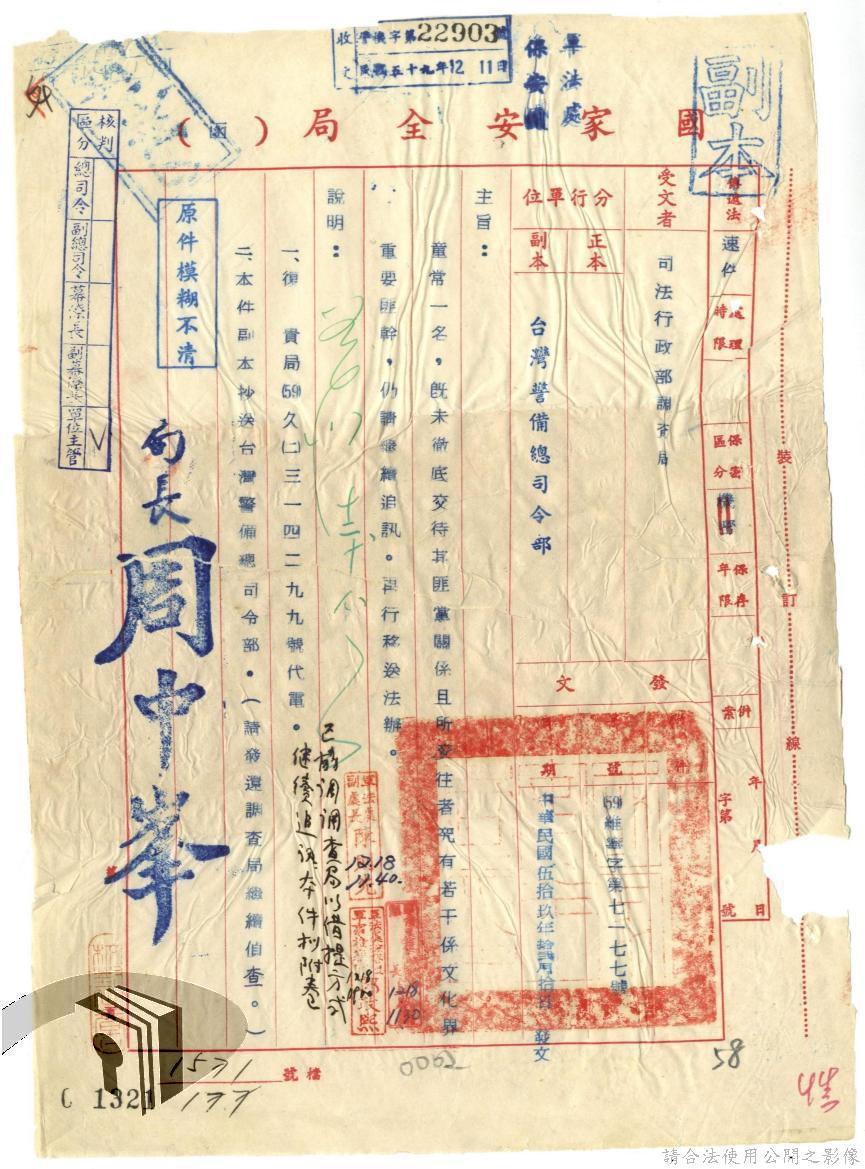 收文
警檢字第22903號
民國五十九年12月11日
軍法處
保安處
副本
國家安全局(函)
核判區分
總司令
副總司令
幕僚長
副幕僚長
單位主管
V
傳遞法
速件
處理時限
保密區分
機密
保存年限
併案
年月日
字第號
受文者
司法行政部調查局
分行單位
正本
副本
台灣警備總司令部
發文
號
期
(59)維寧字第七一七七號
中華民國伍拾玖年拾貳月拾日發文
主旨：
童常一名，既未徹底交待其匪黨關係且所交往者究有若干係文化界
重要匪幹，仍請繼續追訊。再行移送法辦。
說明：
一、復 貴局(59)久(二)三一四二九九號代電。
二、本件副本抄送台灣警備總司令部。(請發還調查局繼續偵查。)
調查局以借提方式
繼續追訊本件擬附卷
軍法處副處長
12.18
11.40.
12.18
1130
原件模糊不清
局長周中峯
裝
訂
線
檔號
1571
177
C 1321
0002
58
請合法使用公開之影像